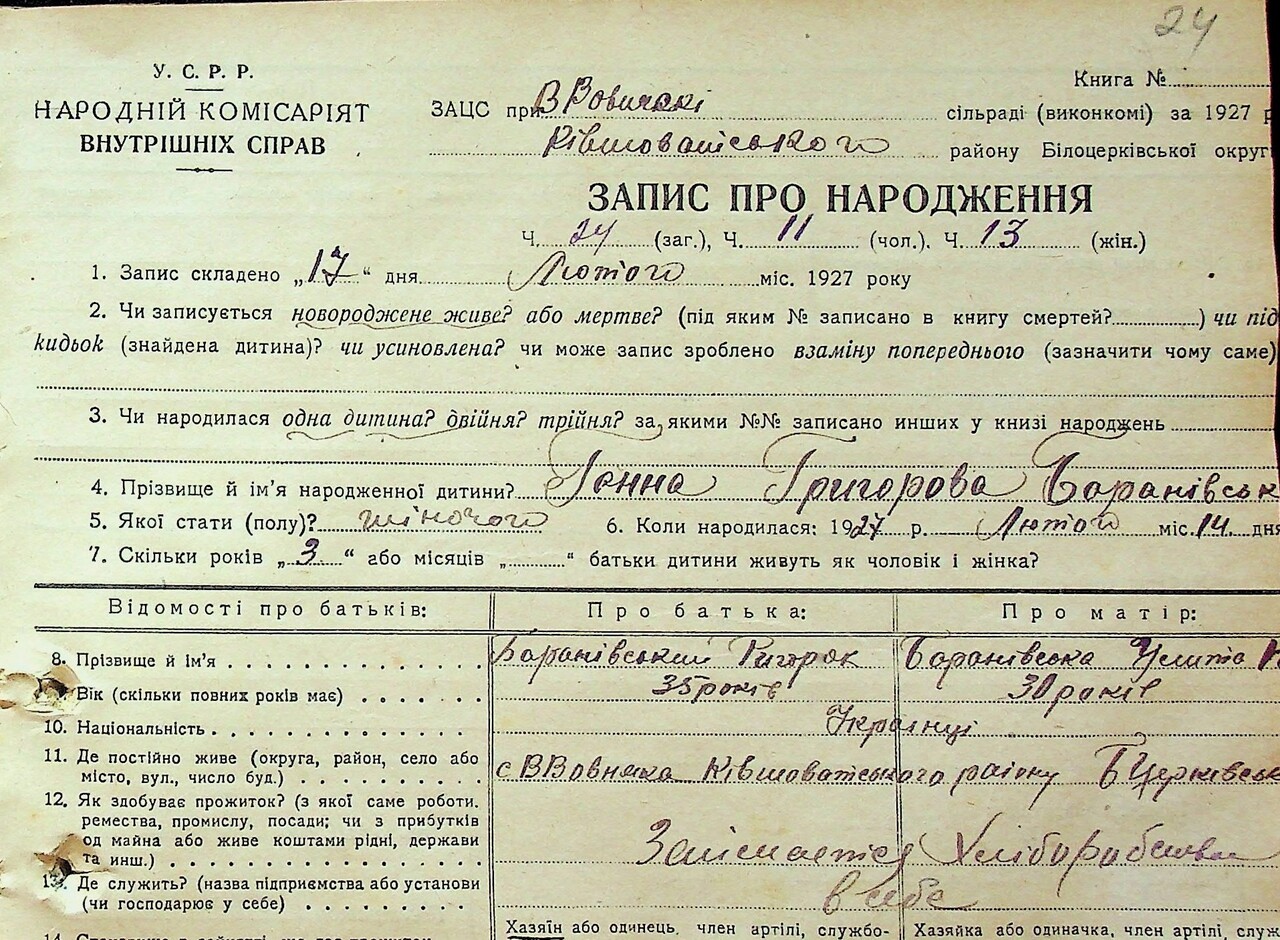 24
У. С. Р. Р.
НАРОДНІЙ КОМІСАРІЯТ
ВНУТРІШНІХ СПРАВ
Книга №
ЗАЦС при В Вовнякі сільраді (виконкомі) за 1927 р
Ківшоватського району Білоцерківської округ
ЗАПИС ПРО НАРОДЖЕННЯ
Ч. 24 (заг.), Ч. 11 (чол.). Ч. 13 (жін.)
1. Запис складено „17“ дня Лютого міс. 1927 року
2. Чи записується новороджене живе? або мертве? (під яким № записано в книгу смертей? ) чи під
кидьок (знайдена дитина)? чи усиновлена? чи може запис зроблено взаміну попереднього (зазначити чому саме)
3. Чи народилася одна дитина? двійня? трійня? за якими №№ записано инших у книзі народжень
4. Прізвище й ім'я народженної дитини? Ганна Григорова Баранівськ
5. Якої стати (полу)? жіночого 6. Коли народилася: 1927 р. Лютого міс. 14 дня
7. Скільки років „3“ або місяців „ “ батьки дитини живуть як чоловік і жінка?
Відомості про батьків: Про батька: Про матір:
8. Прізвище й ім'я Баранівський Григорок Баранівська
Вік (скільки повних років має) 35 років 30 років
10. Національність Українці
11. Де постійно живе (округа, район, село або
місто, вул., число буд.) с ВВовняка Ківшоватського району БЦерківськ
12. Як здобуває прожиток? (з якої саме роботи.
ремества, промислу, посади; чи з прибутків
од майна або живе коштами рідні, держави
та инш.) Займается Хліборобством
13. Де служить? (назва підприємства або установи
(чи господарює у себе) в себе
Хазяїн або одинець, член артілі, службо-
Хазяйка або одиначка, член артілі, служ
14.